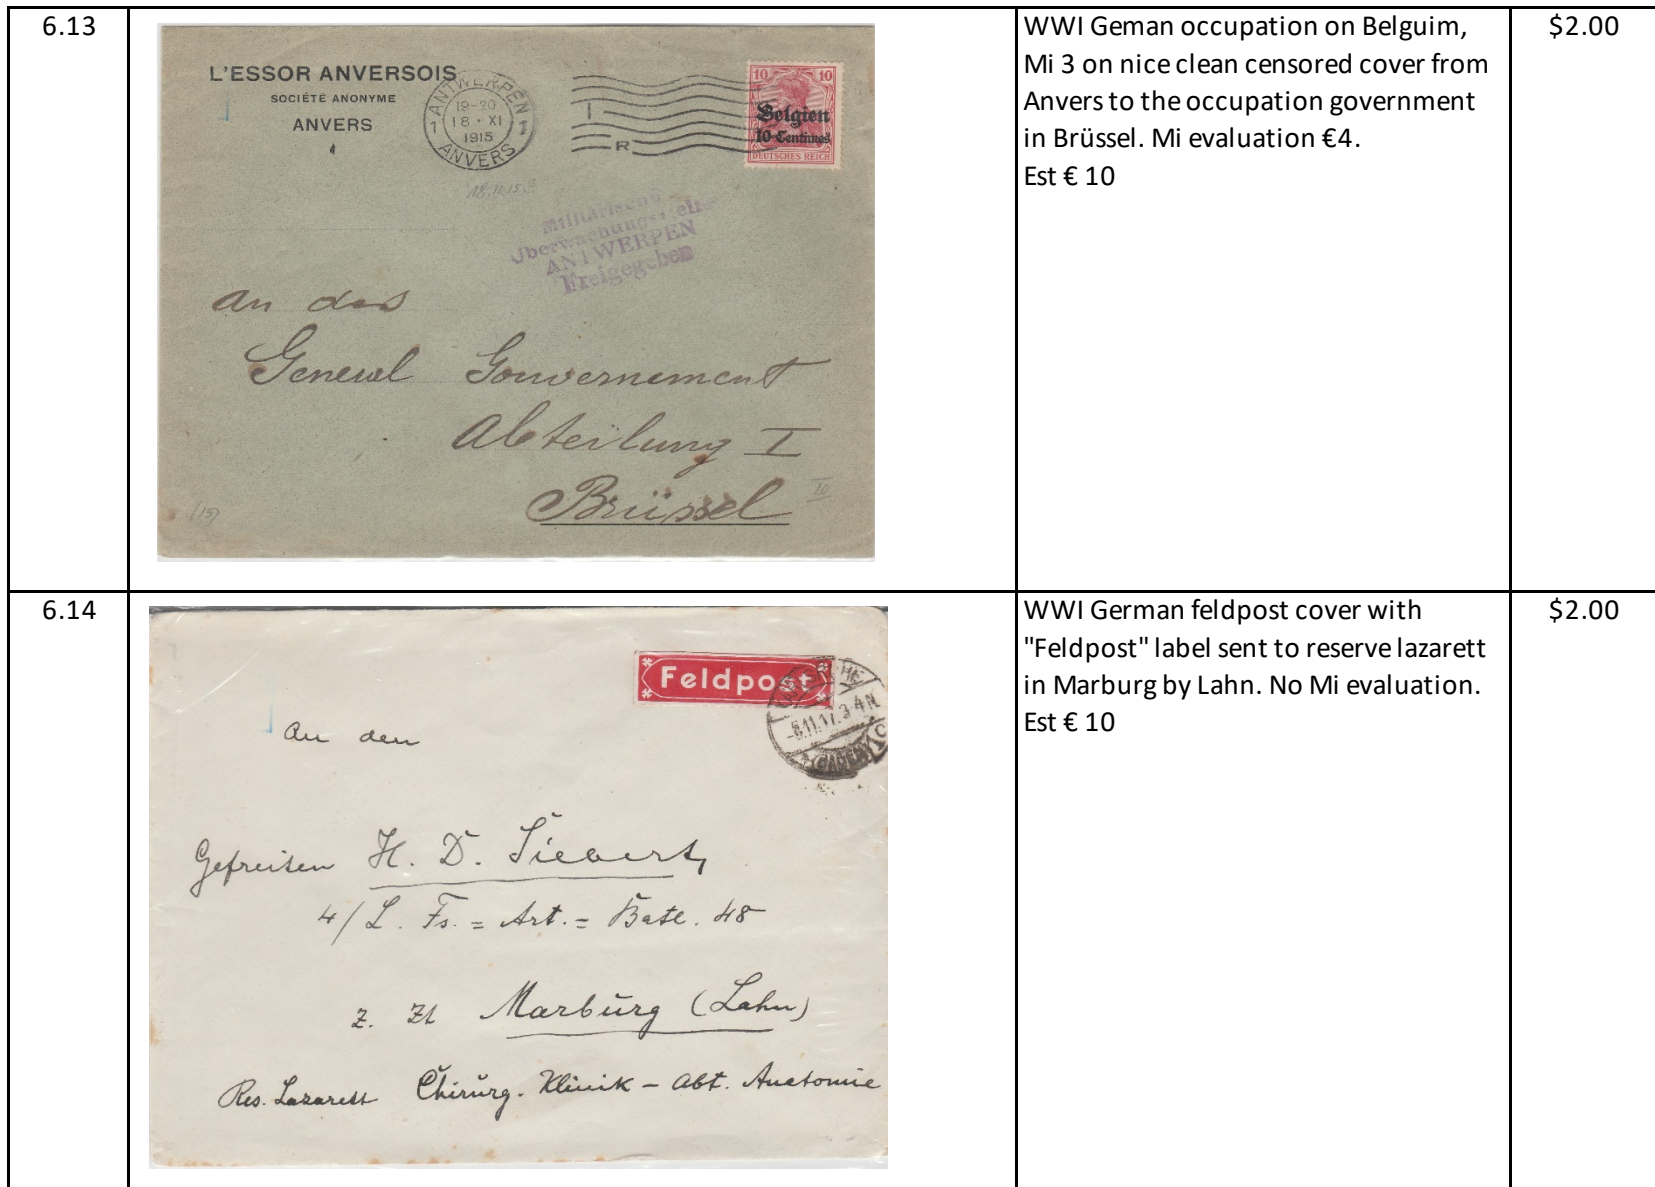 6.13
L'ESSOR ANVERSOIS
SOCIÉTÉ ANONYME
ANVERS
ANTWERPEN
19-20
18 · XI
1915
1 1
ANVERS
R
10 10
Belgien
10 Centimes
DEUTSCHES REICH
18.11.15
Militärische
Überwachungsstelle
ANTWERPEN
Freigegeben
An das
General Gouvernement
Abteilung I
Brüssel
(15)
WWI Geman occupation on Belguim,
Mi 3 on nice clean censored cover from
Anvers to the occupation government
in Brüssel. Mi evaluation €4.
Est € 10
$2.00
6.14
Feldpost
11.17.3-4N
(BADEN)
An den
Gefreiten H. D. Siebert,
4/L. Fs. = Art. = Batl. 48
z. Zt Marburg (Lahn)
Res. Lazarett Chirurg. Klinik - Abt. Anatomie
WWI German feldpost cover with
"Feldpost" label sent to reserve lazarett
in Marburg by Lahn. No Mi evaluation.
Est € 10
$2.00